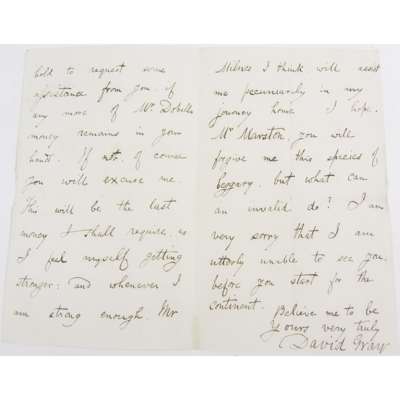 bold to request some
assistance from you, if
any more of Mr Dobells
money remains in your
hands. If not, of course
you will excuse me.
This will be the last
money I shall require, as
I feel myself getting
stronger: and whenever I
am strong enough, Mr
Milnes I think will assist
me pecuniarily in my
journey home. I hope,
Mr Marston, you will
forgive me this species of
beggary, but what can
an invalid do? I am
very sorry that I am
utterly unable to see you
before you start for the
continent.
Believe me to be
Yours very truly
David Gray